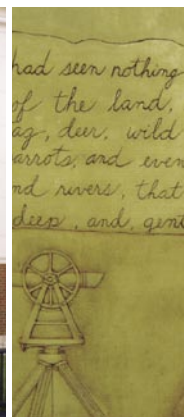 had seen nothing
of the land,
ag, deer, wild
arrots, and even
nd rivers, that
deep, and, gent